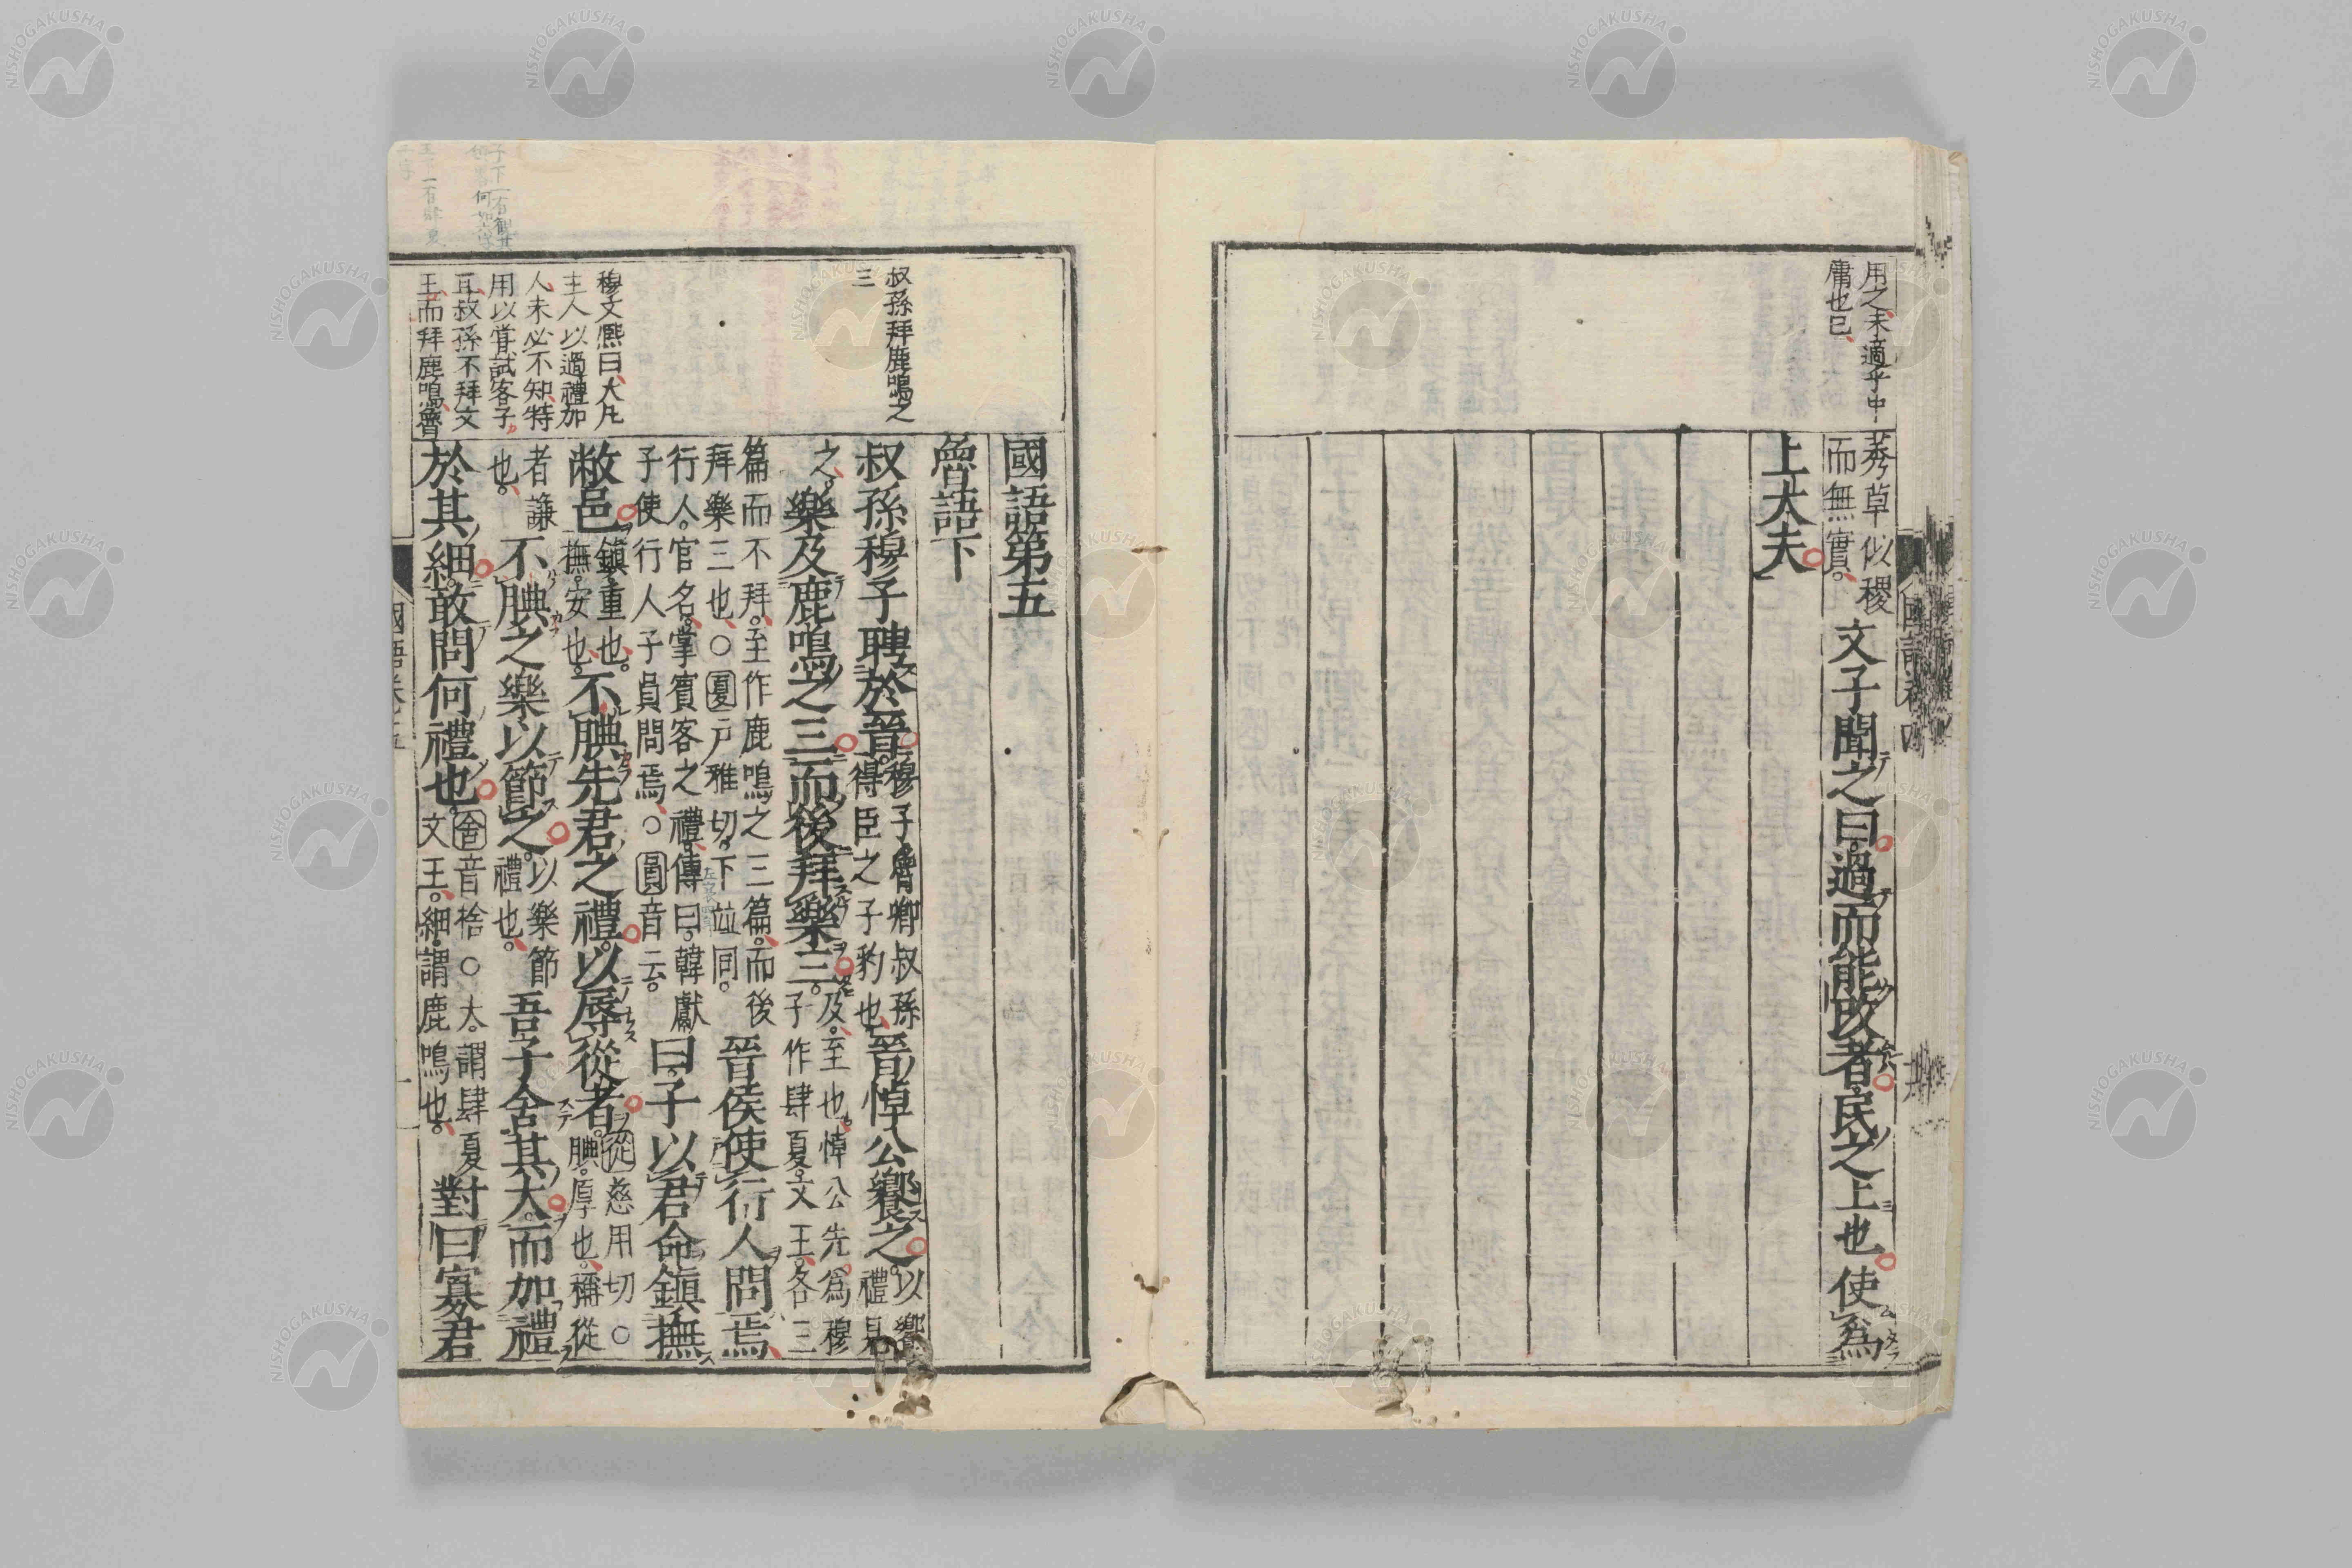 用之、未適乎中
庸也已、
莠草似稷
而無實。
文子聞之曰。過而能改者。民之上也。使爲
上大夫
國語卷四
國語第五
魯語下
叔孫拜鹿鳴之
三
叔孫穆子聘於晉。
穆子魯卿叔孫
得臣之子豹也、
晉悼公饗之。
以饗
禮見
之、
樂及鹿鳴之三。而後拜樂三。
及。至也。悼公先爲穆
子作肆夏。文王。各三
篇而不拜。至作鹿鳴之三篇。而後
拜樂三也、○夏戸雅切。下竝同。
晉侯使行人問焉、
行人。官名。掌賓客之禮。傳曰。韓獻
子使行人子員問焉。○員音云。
曰。子以君命鎮撫
敝邑。
鎮。重也。
撫。安也。
不腆先君之禮。以辱從者。
從慈用切○
腆。厚也。稱從
者謙
也。
不腆之樂以節之。
以樂節
禮也。
吾子舍其大。而加禮
於其細。敢問何禮也。
舍音捨○大。謂肆夏
文王。細。謂鹿鳴也。
對曰寡君
穆文熈曰、大凡
主人以過禮加
人、未必不知、特
用以嘗試客子
耳、叔孫不拜文
王、而拜鹿鳴、魯
NISHOGAKUSHA